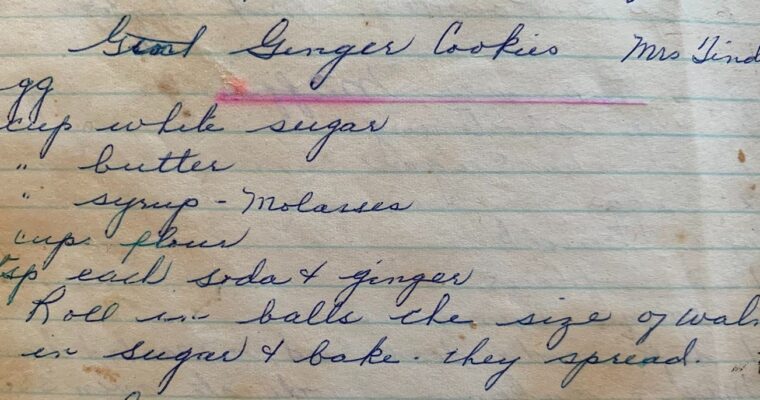 Ginger Cookies Mrs Tind
gg
cup white sugar
" butter
" syrup - Molasses
cup flour
tsp each soda & ginger
Roll in balls the size of waln
in sugar & bake. they spread.